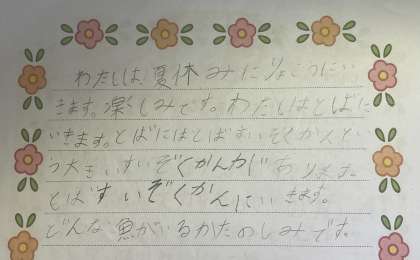 わたしは、夏休みにりょこうにい
きます。楽しみです。わたしはとばに
いきます。とばにはとばすいぞくかんとい
う大きいすいぞくかんがあります。
とばすいぞくかんにいきます。
どんな魚がいるかたのしみです。